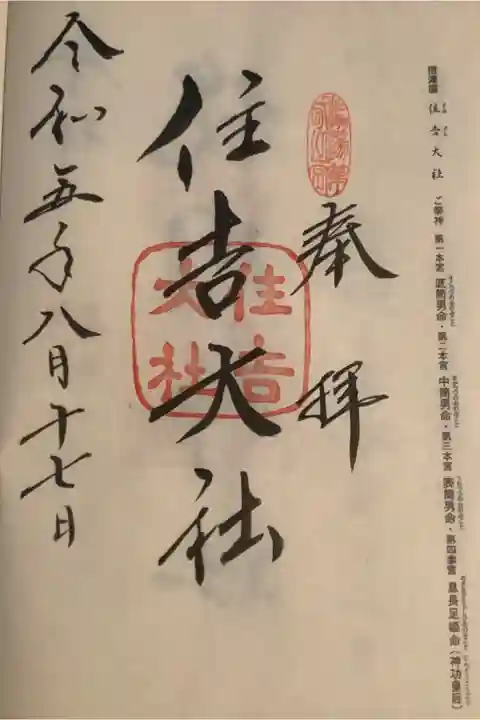 摂津国 住吉大社 ご祭神 第一本宮 底筒男命・第二本宮 中筒男命・第三本宮 表筒男命・第四本宮 息長足姫命(神功皇后)
奉拝
住吉大社
住吉
大社
令和五年八月十七日